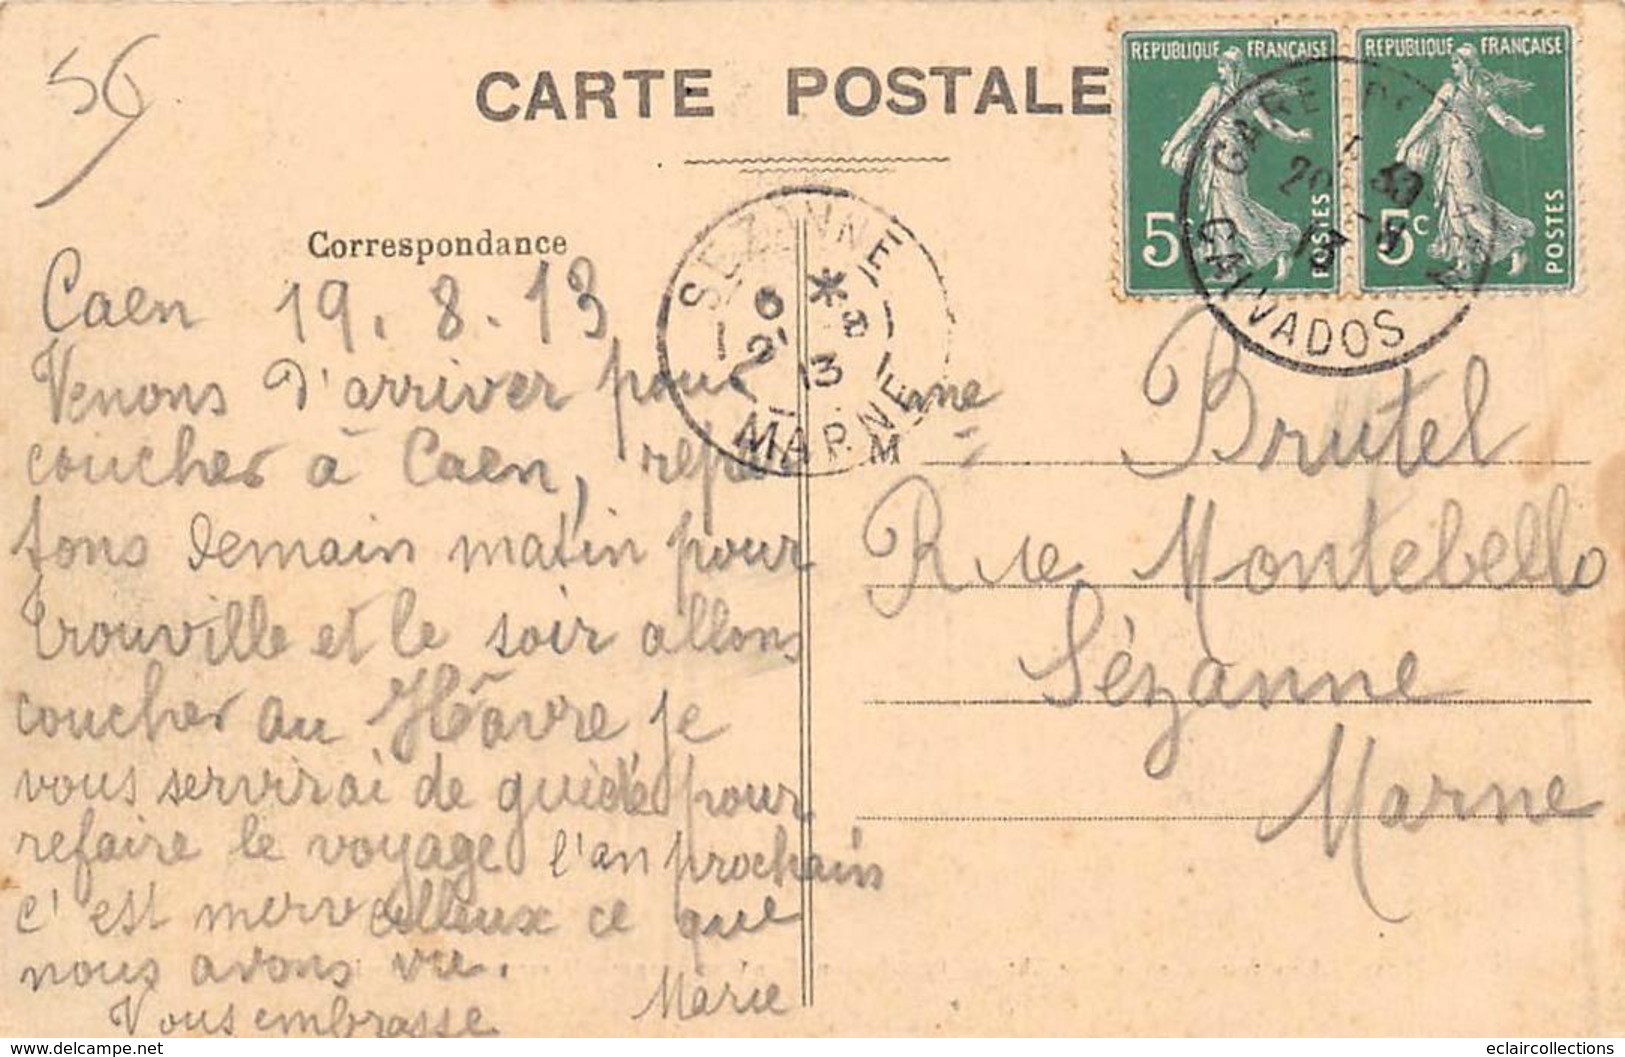 56
CARTE POSTALE
REPUBLIQUE FRANÇAISE
5c POSTES
REPUBLIQUE FRANÇAISE
5c POSTES
GARE DE CAEN
CALVADOS
SEZANNE
6 * 21 8 13
MARNE
Correspondance
Caen 19.8.13
Venons d'arriver pour
coucher à Caen, repar
tons demain matin pour
Trouville et le soir allons
coucher au Hâvre je
vous servirai de guide pour
refaire le voyage l'an prochain
c'est merveilleux ce que
nous avons vu.
Vous embrasse
Marie
M me Brutel
Rue Montebello
Sézanne
Marne
www.delcampe.net
eclaircollections